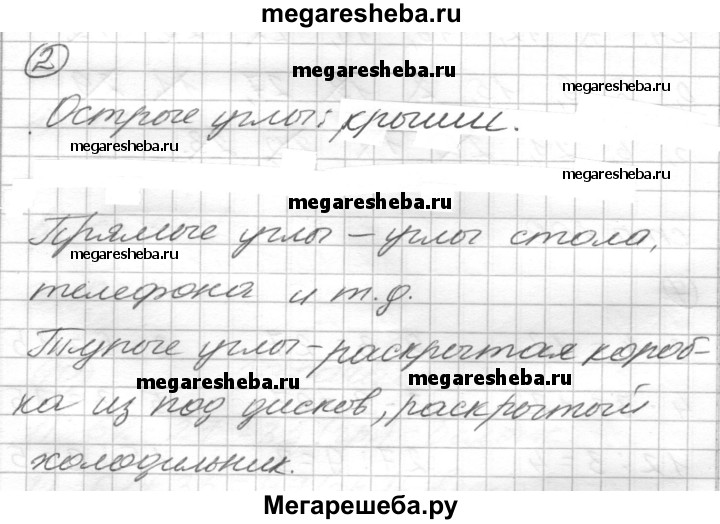 megaresheba.ru
2
megaresheba.ru
megaresheba.ru
Острые углы: крыши.
megaresheba.ru
megaresheba.ru
megaresheba.ru
Прямые углы – углы стола,
megaresheba.ru
megaresheba.ru
телефона и т.д.
Тупые углы – раскрытая короб-
megaresheba.ru
megaresheba.ru
ка из под дисков, раскрытый
холодильник.
Мегарешеба.ру